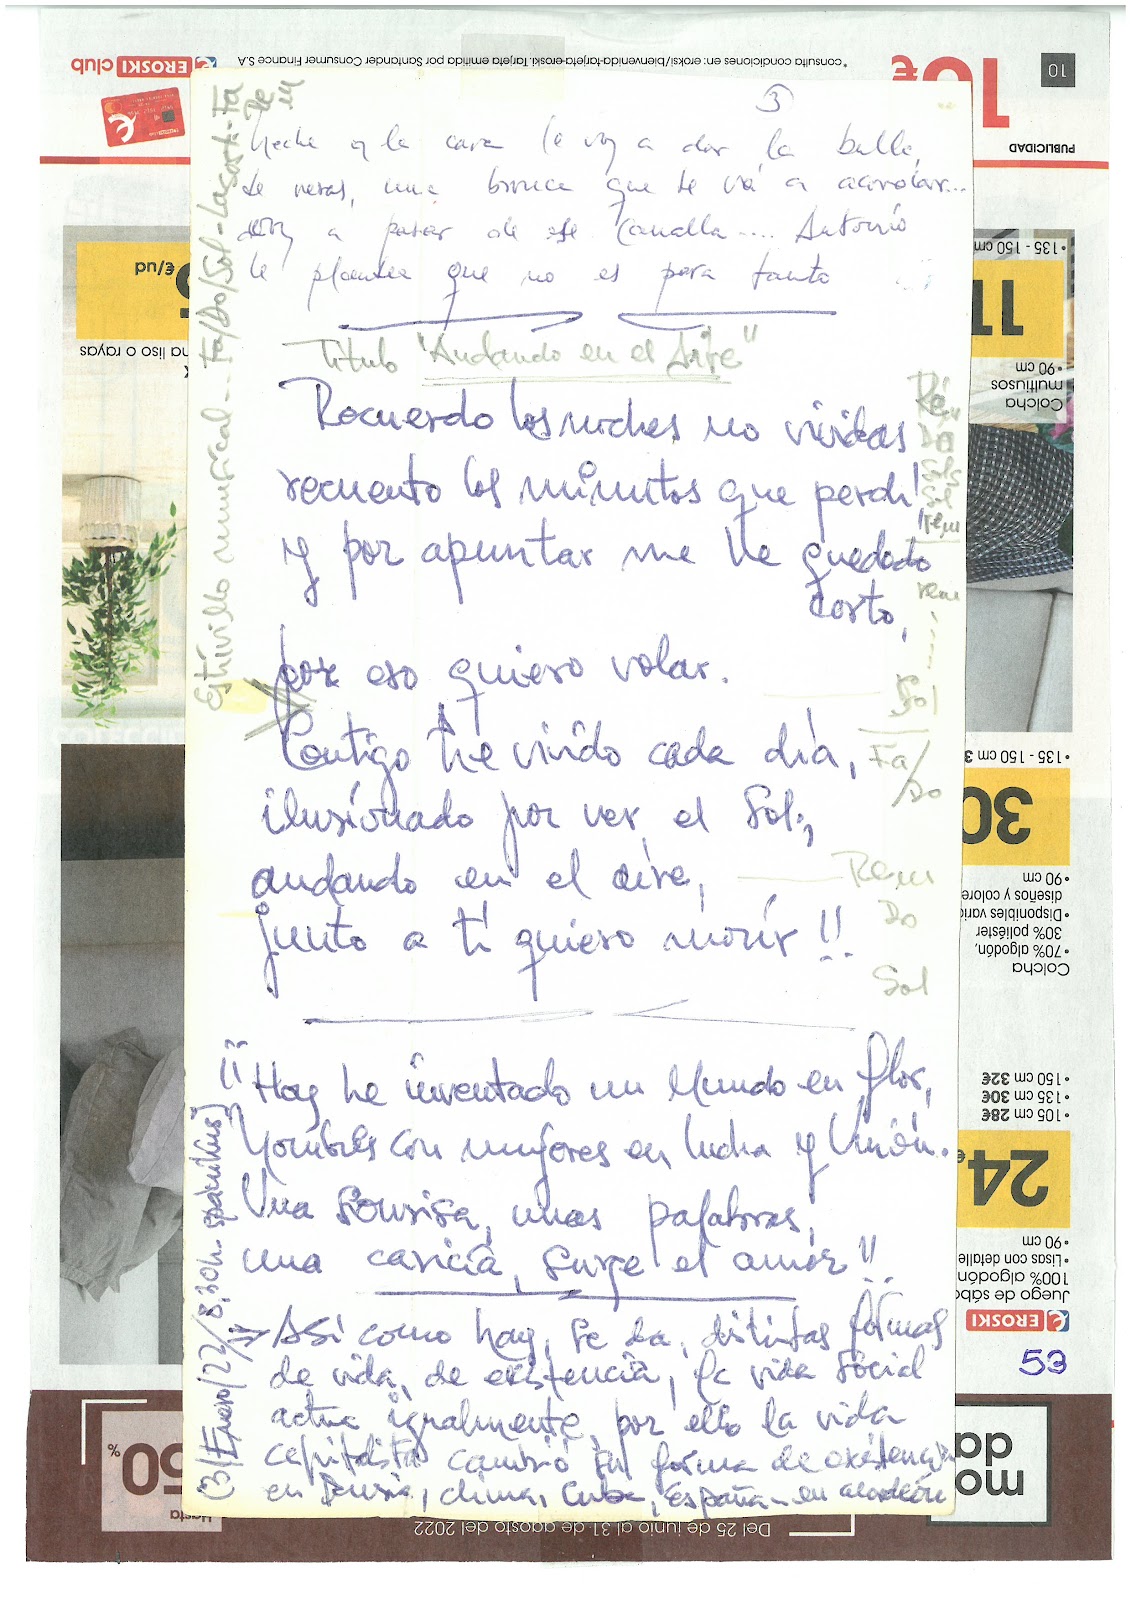 3
y la cara le voy a dar la
de veras, una bronca que se va a acarolar...
voy a pasar de ese canalla.... Antonio
le plantea que no es para tanto ...
Titulo "Andando en el Aire"
Recuerdo las noches no vividas
recuento los minutos que perdí
y por apuntar me he quedado
corto,
por eso quiero volar.
Contigo he vivido cada día,
ilusionado por ver el Sol;
andando en el aire,
junto a tí quiero morir!!
Rem
Do
Sol
Fa/
Do
Rem
Do
Sol
Estrivillo musical... Fa/Do/Sol-La
¡¡ Hoy he inventado un Mundo en flor,
hombres con mujeres en lucha y Unión.
Una Sonrisa, unas palabras,
una caricia, surge el amor!!
(3/Enero/22/8,30h-
Asi como hay, se da, distintas formas
de vida, de existencia, la vida social
actua igualmente, por ello la vida
capitalista cambió su forma de existencia
en Rusia, China, Cuba, España - en
53
10
PUBLICIDAD
10€
*consulta condiciones en: eroski/bienvenida-tarjeta-eroski. Tarjeta emitida por Santander Consumer Finance S.A
EROSKI club
€/ud
na liso o rayas
11
•135 - 150 cm
•90 cm
Colcha
multiusos
30
•135 - 150 cm 3
•90 cm
diseños y colore
•Disponibles vario
30% poliéster
•70% algodón,
Colcha
24€
•150 cm 32€
•135 cm 30€
•105 cm 28€
•90 cm
•Lisas con detalle
100% algodón
Juego de sába
EROSKI
50%
Hasta
mo
da
Del 25 de junio al 31 de agosto del 2022